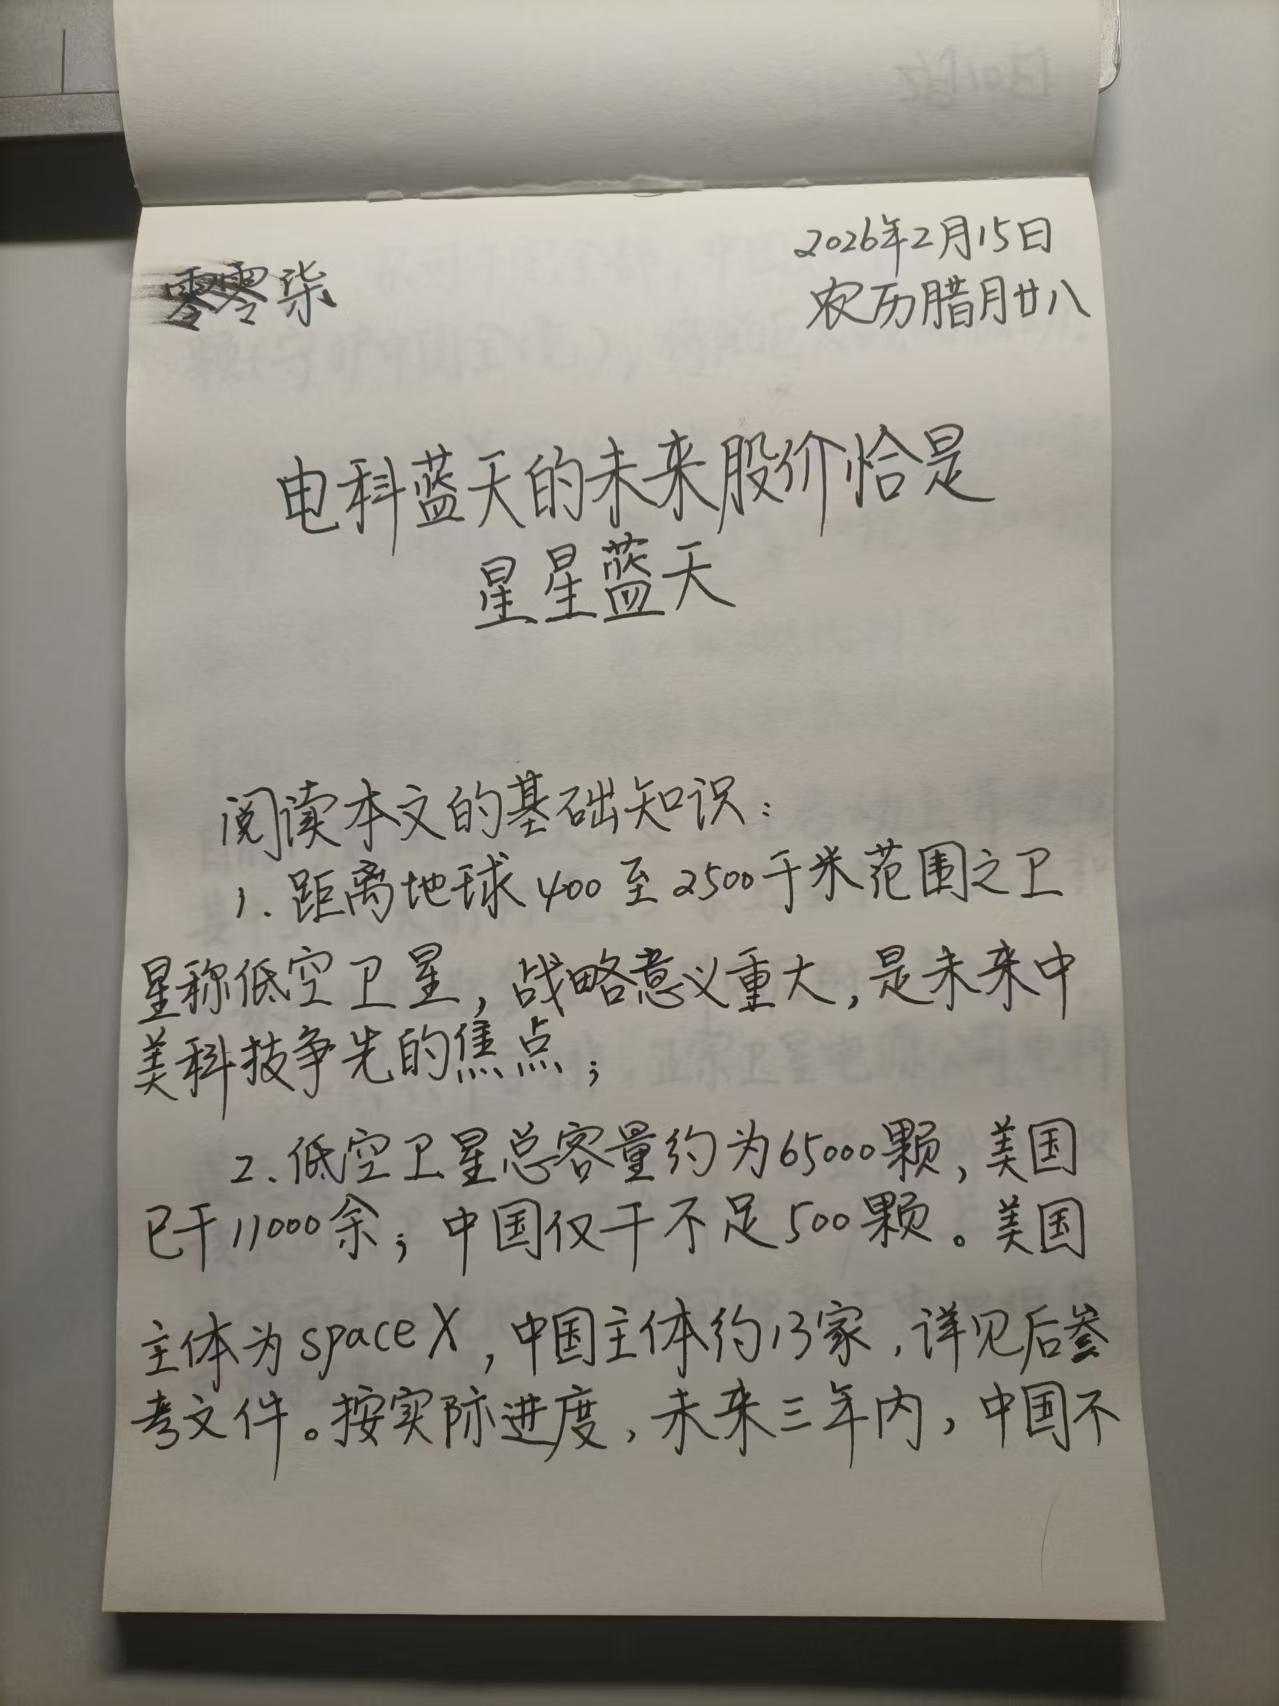 2026年2月15日
零零柒
农历腊月廿八
电科蓝天的未来股价恰是
星星蓝天
阅读本文的基础知识：
1.距离地球400至2500千米范围之卫
星称低空卫星，战略意义重大，是未来中
美科技争先的焦点；
2.低空卫星总容量约为65000颗，美国
已干11000余；中国仅干不足500颗。美国
主体为spaceX，中国主体约13家，详见后叁
考文件。按实际进度，未来三年内，中国不